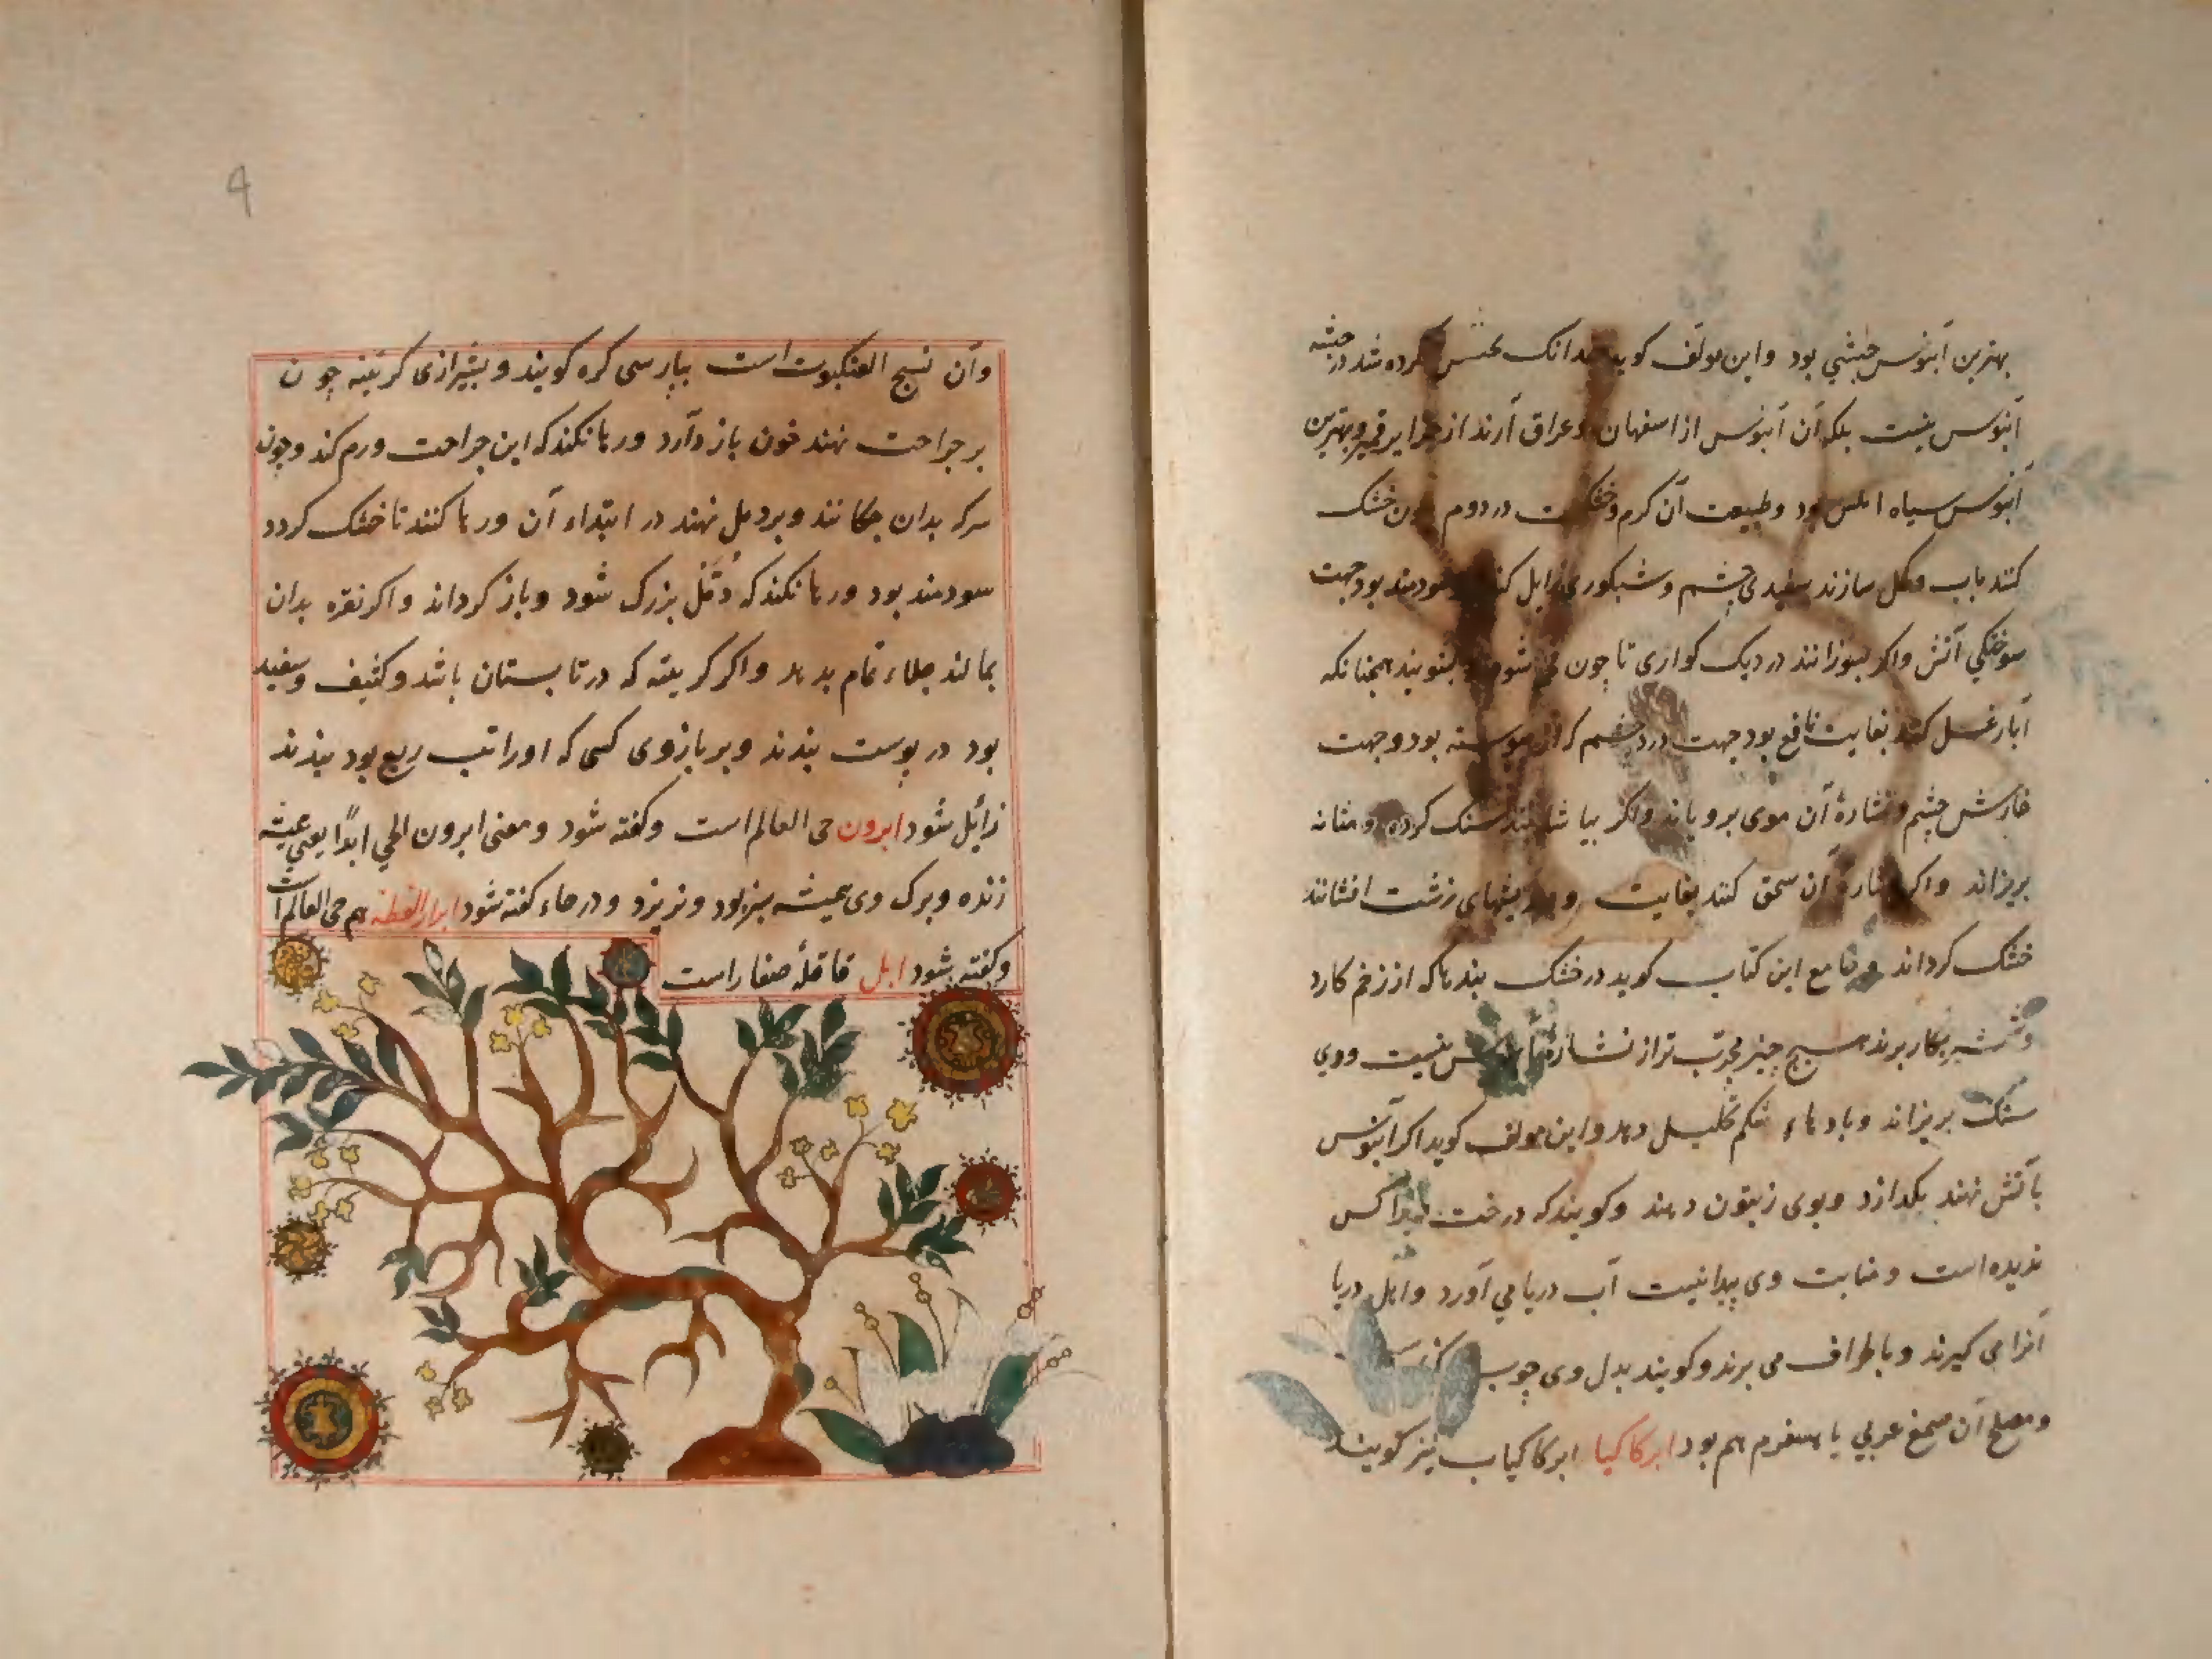 بهترین آبنوس حبشی بود و این مولف کوید بدانک تحقیق کرده شد در حبشه
آبنوس نیست بلکه آن آبنوس از اسفهان و عراق آرند از وبهترین
آبنوس سیاه املس بود و طبیعت آن کرم و خشکست در دوم چون خشک
کنند باب و کل سازند سفیدی چشم و شبکوری زایل کند و سودمند بود جهت
سوختکی آتش و اکر بسوزانند در دیک کواری تا چون شود و بشویند همچنانکه
آبار غسل کنند بغایت نافع بود جهت درد چشم که از بود و جهت
خارش چشم و نشارهٔ آن موی برویاند و اکر بیاشامند سنک کرده و مثانه
بریزاند و اکر نشارهٔ آن سحق کنند بغایت و بر ریشهای زشت افشانند
خشک کرداند و جامع این کتاب کوید در خشک بندها که از زخم کارد
و شمشیر بکار برند هیچ چیز مجرب تر از نشارهٔ آبنوس نیست و وی
سنک بریزاند و بادهاء شکم تحلیل دهد و این مولف کوید اکر آبنوس
بآتش نهند بکدازد و بوی زیتون دهند و کویند که درخت کس
ندیده است و منابت وی پیدا نیست آب دریا می آورد و اهل دریا
آنرا می کیرند و باطراف می برند و کویند بدل وی چوب
و مصلح آن صمغ عربی یا هم بود ابرکاکیا ابرکاکیاب نیز کویند
وآن نسج العنکبوت است بپارسی کره کویند و بشیرازی کرتینه چون
بر جراحت نهند خون باز دارد و رها نکند که این جراحت ورم کند و چون
سرکه بدان چکانند و بر دمل نهند در ابتداء آن و رها کنند تا خشک کردد
سودمند بود و رها نکند که دمّل بزرک شود و باز کرداند و اکر نقره بدان
بمالند جلاء تمام بدهد و اکر کرتینه که در تابستان باشد و کثیف و سفید
بود در پوست بندند و بر بازوی کسی که اورا تب ربع بود بندند
زائل شود ابرون حی العالم است و کفته شود و معنی ابرون الحي ابدًا یعنی همیشه
زنده و برک وی همیشه سبز بود و نریزد و در حاء کفته شود هم حی العالم است
و کفته شود ابل قاقلهٔ صغار است
4